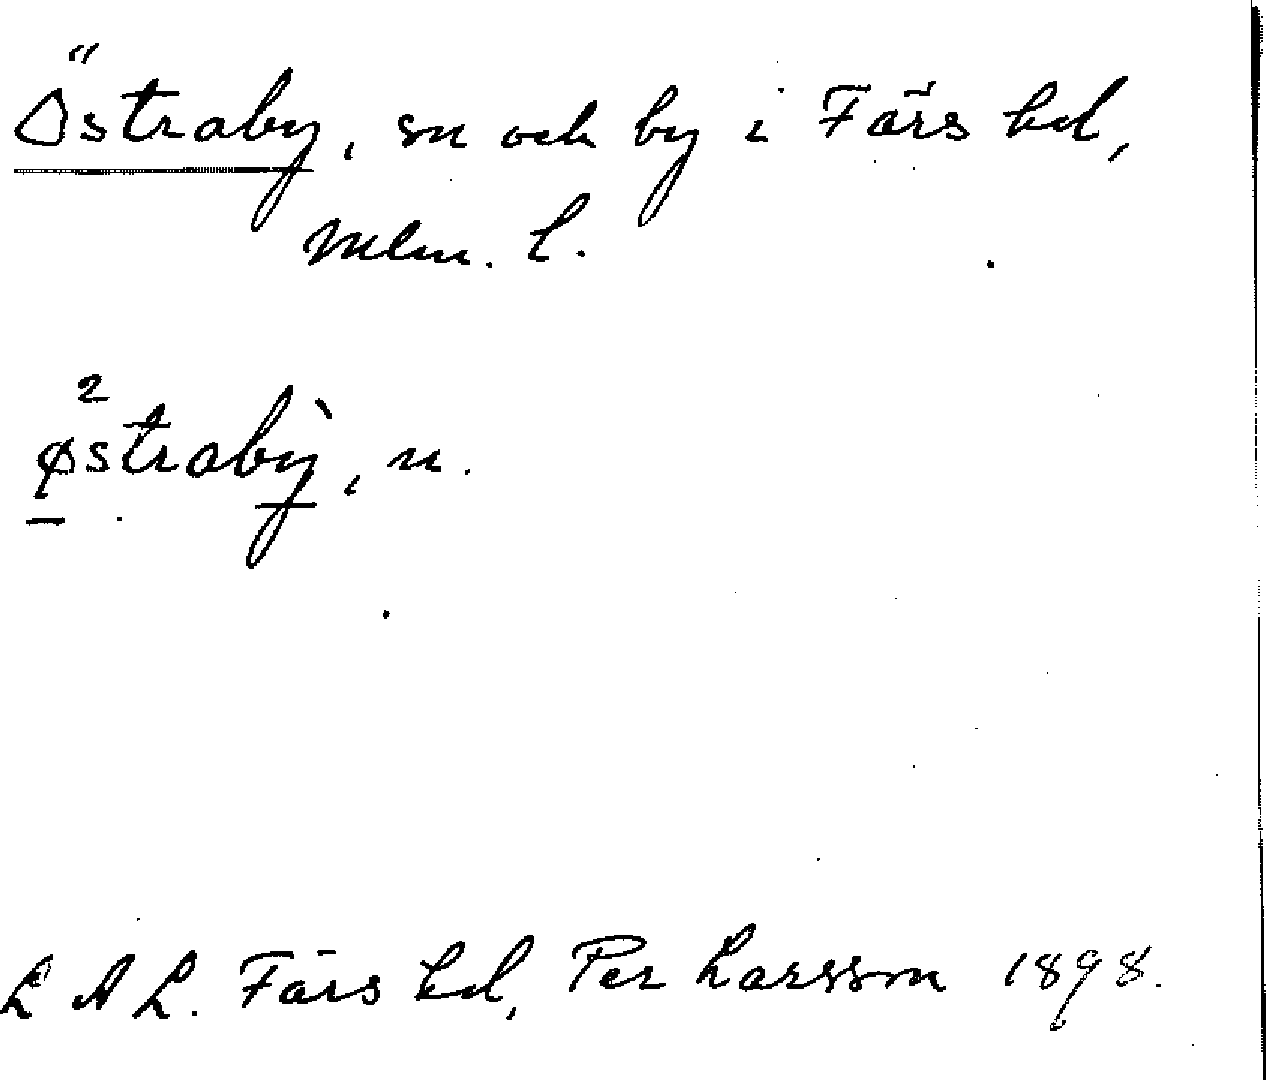 Östraby, sn och by i Färs hd,
Mlm. l.
2
østrabỳ, n.
LAL. Färs hd, Per Larsson 1898.